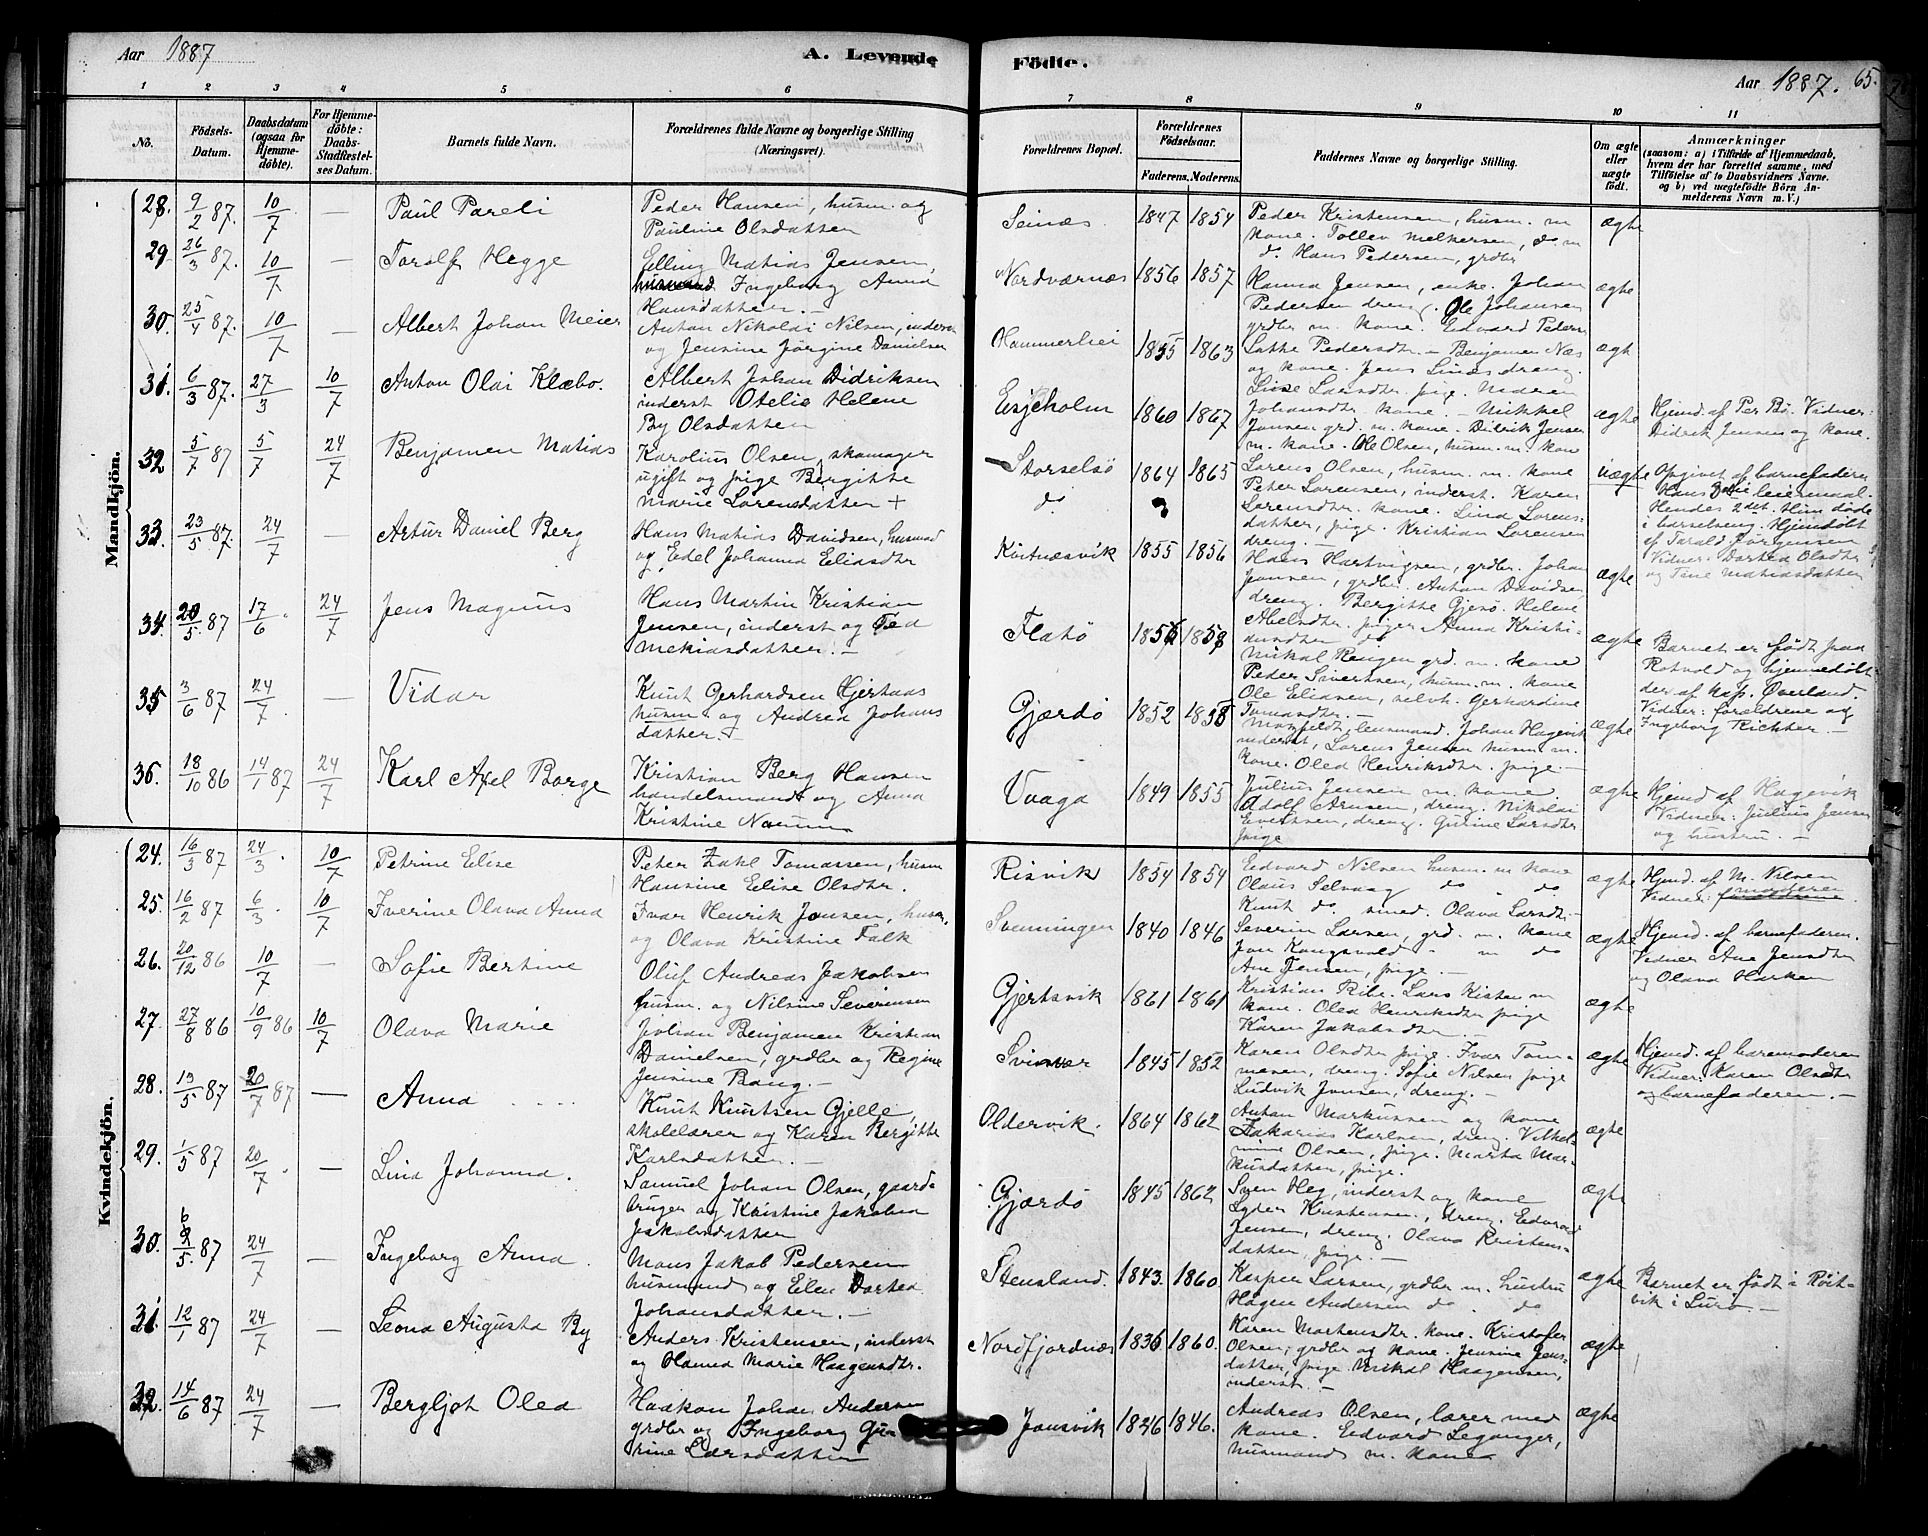 Aar 1887
A. Levende Födte.
Aar 1887. 65.
1 2 3 4 5 6 7 8 9 10 11
No.
Födsels-Datum.
Daabsdatum (ogsaa for Hjemme-döbte).
For Hjemme-döbte: Daabs-Stadfæstel-ses Datum.
Barnets fulde Navn.
Forældrenes fulde Navne og borgerlige Stilling (Næringsvei).
Forældrenes Bopæl.
Forældrenes Födselsaar.
Faderens. Moderens.
Faddernes Navne og borgerlige Stilling.
Om ægte eller uægte født.
Anmærkninger
(saasom: a) i Tilfælde af Hjemmedaab,
hvem der har forrettet samme, med
Tilföielse af to Daabsvidners Navne.
og b) ved uægtefödte Börn An-
melderens Navn m. V.)
Mandkjön.
28. 9/2 87. 10/7 — Paul Pareli
Peder Hansen, husm. og
Pauline Olsdatter
Seinæs 1847 1854
Peder Kristensen, husm. m
kone. Tollev Melkersen, do m
do. Hans Pedersen, grdbr
ægte
29. 26/3 87. 10/7 — Toralf Hegge
Elling Matias Jensen,
husmand Ingeborg Anna
Hansdatter. —
Nordværnæs 1856 1857
Hanna Jensen, enke. Johan
Pedersen dreng. Ole Johansen
grdbr m. kone. Edvard Peders
ægte
30. 25/4 87. 10/7 — Albert Johan Meier
Anton Nikolai Nilsen, inderst
og Jensine Jörgine Danielsen
Hammerliei 1855 1863
Pedersdtr. — Benjamen Næs
og kone. Jens dreng.
Larsdtr. pige. Maren
ægt
31. 6/3 87. 27/3 10/7 Anton Olai Klæbo.
Albert Johan Didriksen
inderst Otelie Helene
By Olsdatter
Esjeholm 1860 1867
Johansdtr. kone. — Mikkel
Jonsen grd. m. kone. Didrik Jensen
m. kone. Ole Olsen, husm. m. kon
ægte
Hjemd. af Per Bö. Vidner:
Didrik Jensen og kone.
32 5/7 87 5/7 24/7 Benjamen Matias
Karolius Olsen, skomager
ugift og pige Bergitte
Marie Lorensdatter +
Storselsö 1864 1865
do
Lorens Olsen, husm. m. kone
Peter Lorensen, inderst. Karen
Lorensdtr. kone. Lina Lorens-
datter, pige. Kristian Lorensen
dreng. —
uægte
Opgivet af barnefaderen
Hans leiermaal.
Hendes 2det. Hun døde
i barselseng. Hjemdöbt
af Torald Jörgensen
Vidner: Dortea Olsdtr
og Tine Matiasdatter
33. 23/5 87. 24/7 — Artur Daniel Berg
Hans Matias Davidsen, husmd
og Edel Johanna Eliasdtr
Kvitnæsvik 1855 1856
Hans Hartvigsen, grdbr. Johan
Jonsen, grdbr. Anton Davidsen
dreng. Bergitte Gjesö. Helene
Abelsdtr. piger Anna Kristi-
ansdtr do
ægte
34. 20/5. 87 17/6 24/7 Jens Magnus
Hans Martin Kristian
Jensen, inderst og Tea
Mekiasdatter. —
Flatö 1856 1858
Mikal Ringen grd. m. kone
Peder Sivertsen, husm. m. kone
Ole Eliasen, selvh. Gerhardine
Tomasdtr. —
ægte
Barnet er født paa
Rotvold og hjemmedöbt
der af kap. Øverland.
Vidner: forældrene og
Ingeborg Richter. —
35 3/6 87 24/7. — Vidar
Knut Gerhardsen Hjertaas
husm. og Andrea Johans
datter. +
Gjærdö 1852 1858
Mozfeldt, lensmand. Johan Hagevik
inderst, Lorens Jensen husm. m.
kone. Olea Henriksdtr. pige. —
ægte
36. 18/10 86 14/1 87 24/7 Karl Axel Borge
Kristian Berg Hansen
handelsmand og Anna
Kristine Naum
Vaaga 1849 1855
Julius Jensen m. kone.
Adolf Arnsen, dreng. Nikolai
Evertsen, dreng. Gurine Larsdtr
pige
ægte
Hjemd af Hagevik
Vidner: Julius Jensen
og hustru. —
Kvindekjön.
24. 16/3 87 24/3. 10/7 Petrine Elise
Peter Zakl Tomassen, husm
Hansine Elise Olsdtr.
Risvik 1854 1854
Edvard Nilsen husm. m kone
Olaus Selvaag do do
Knut do. smed. Olava Larsdtr. —
ægte
Hjemd. af M. Nilsen
Vidner: forældrene moderen
25. 16/2 87 6/3. 10/7 Iverine Olava Anna
Ivar Henrik Jonsen, husm.
og Olava Kristine Falk
Svenningen 1840 1846
Severin Larsen, grd. m. kone
Jon Kongsvold - m do
Ane Jensen, pige. —
ægte
Hjemd. af barnefaderen.
Vidner Ane Jensdtr
og Olava Harken
26. 20/12 86 10/7 — Sofie Bertine
Oluf Andreas Jakobsen
husm. og Nilsine Severinsen
Gjertsvik 1861 1861
Kristian Ribe. Lars Kisten m
kone. Olea Henriksdtr pige
Karen Jakobsdtr. —
ægte
27. 27/8 86 10/9 86 10/7 Olava Marie
Johan Benjamen Kristian
Danielsen, grdbr og Regine
Jensine Bang. —
Svinvær 1845 1852
Karen Olsdtr pige. Ivar Tom-
masen, dreng. Sofie Nilsen pige
Ludvik Jonsen, dreng. —
ægte
Hjemd. af baremoderen
Vidner: Karen Olsdtr
og barnefaderen. —
28. 13/5 87 20/7 87 — Anna
Knut Knutsen Gjelle,
skolelærer og Karen Bergitte
Karlsdatter. —
Oldervik. 1864 1862
Anton Markussen og kone
Zakarias Karlsen, dreng. Vilhel-
mine Olsen, pige. Marta Mar-
kusdatter, pige.
ægte
29. 1/5 87 20/7. — Lina Johanna.
Samuel Johan Olsen, gaard-
bruger og Kristine Jakobea
Jakobsdatter
Gjærdö 1845 1862
Sven Heg, inderst og kone
Lyder Kristensen, dreng. Edvard
Jensen, dreng. Olava Kristens-
datter, pige. —
ægte
30. 6/5. 87 24/7 — Ingeborg Anna.
Mons Jakob Pedersen
husmand og Elen Dortea
Johansdatter. —
Stensland. 1843. 1860
Kasper Larsen, grdbr m. hustru
Hagen Andersen do. do
Karen Mortensdtr. kone.
ægte
Barnet er født i Röit-
vik i Lurö. —
31. 12/1 87 24/7 — Leona Augusta By
Anders Kristensen, inderst
og Hanna Marie Haagensdtr.
Nordfjordnæs 1836 1860.
Kristofer
Olsen, grdbr og kone. Jensine Jens-
datter, pige. Mikal Haagensen,
inderst. —
ægte
32. 14/6 87 24/7 — Bergljot Olea
Haakon Johan Andersen
grdbr og Ingeborg Gu-
rine Larsdatter
Jonsvik 1846 1846.
Andreas Olsen, lærer med
kone. Edvard Leganger,
husmand m. kone
ægte